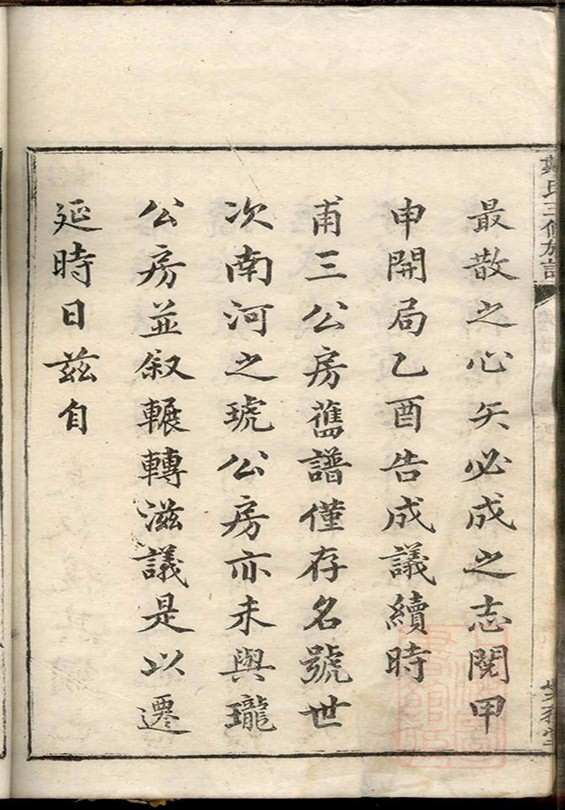 最散之心矢必成之志閱甲
申開局乙酉告成議續時
甫三公房舊譜僅存名號世
次南河之琥公房亦未與瓏
公房並叙輾轉滋議是以遷
延時日茲自
氏三修族譜